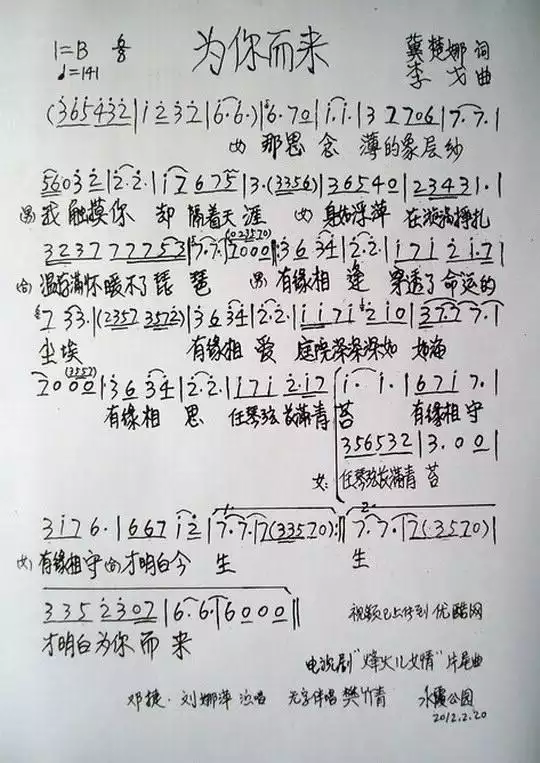 1=B 6/8 为你而来 冀楚娜 词
♩=141 李戈 曲
(365432|1232|6·6·)|6·70|1·1·|3 2706|7·7·|
(女) 那思念 薄的象层纱
56032|2·2·|17675|3·(3356)|36540|23431·|
(男) 我触摸你 却隔着天涯 (女) 身如浮萍 在漩涡挣扎
3237777553|7·7·|7000|3634|2·2·|171217|
(合) 温存满怀暖不了琵琶 (男) 有缘相逢 穿透了命运的
733·|(2357 3572)|3634|2·2·|1171210|3777·|
尘埃 有缘相爱 庭院深深深如海
2000|3634|2·2·|1171217|1·1·|6717·|
有缘相思 任琴弦长满青苔 有缘相守
356532|3·00|
女: 任琴弦长满青苔
3176·|66712|7·7·|7(33570):||7·7·|7(3570)|
(女) 有缘相守 (合) 才明白今生 生
3352302|6·6·|6000||
才明白为你而来 视频已上传到优酷网
电视剧"烽火儿女情"片尾曲
邓捷·刘娜萍 演唱 无字伴唱 樊竹青 永霞公园
2012.2.20